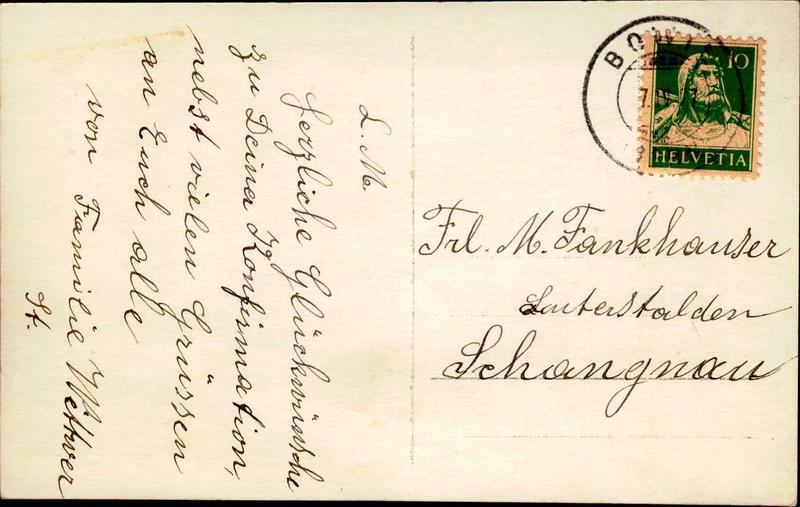 L. M.
Herzliche Glückwünsche
zu Deina Konfirmation,
nebst vielen Grüssen
an Euch alle
von Familie Wittwer
St.
BOWIL
10
HELVETIA
Frl. M. Fankhauser
Schangnau